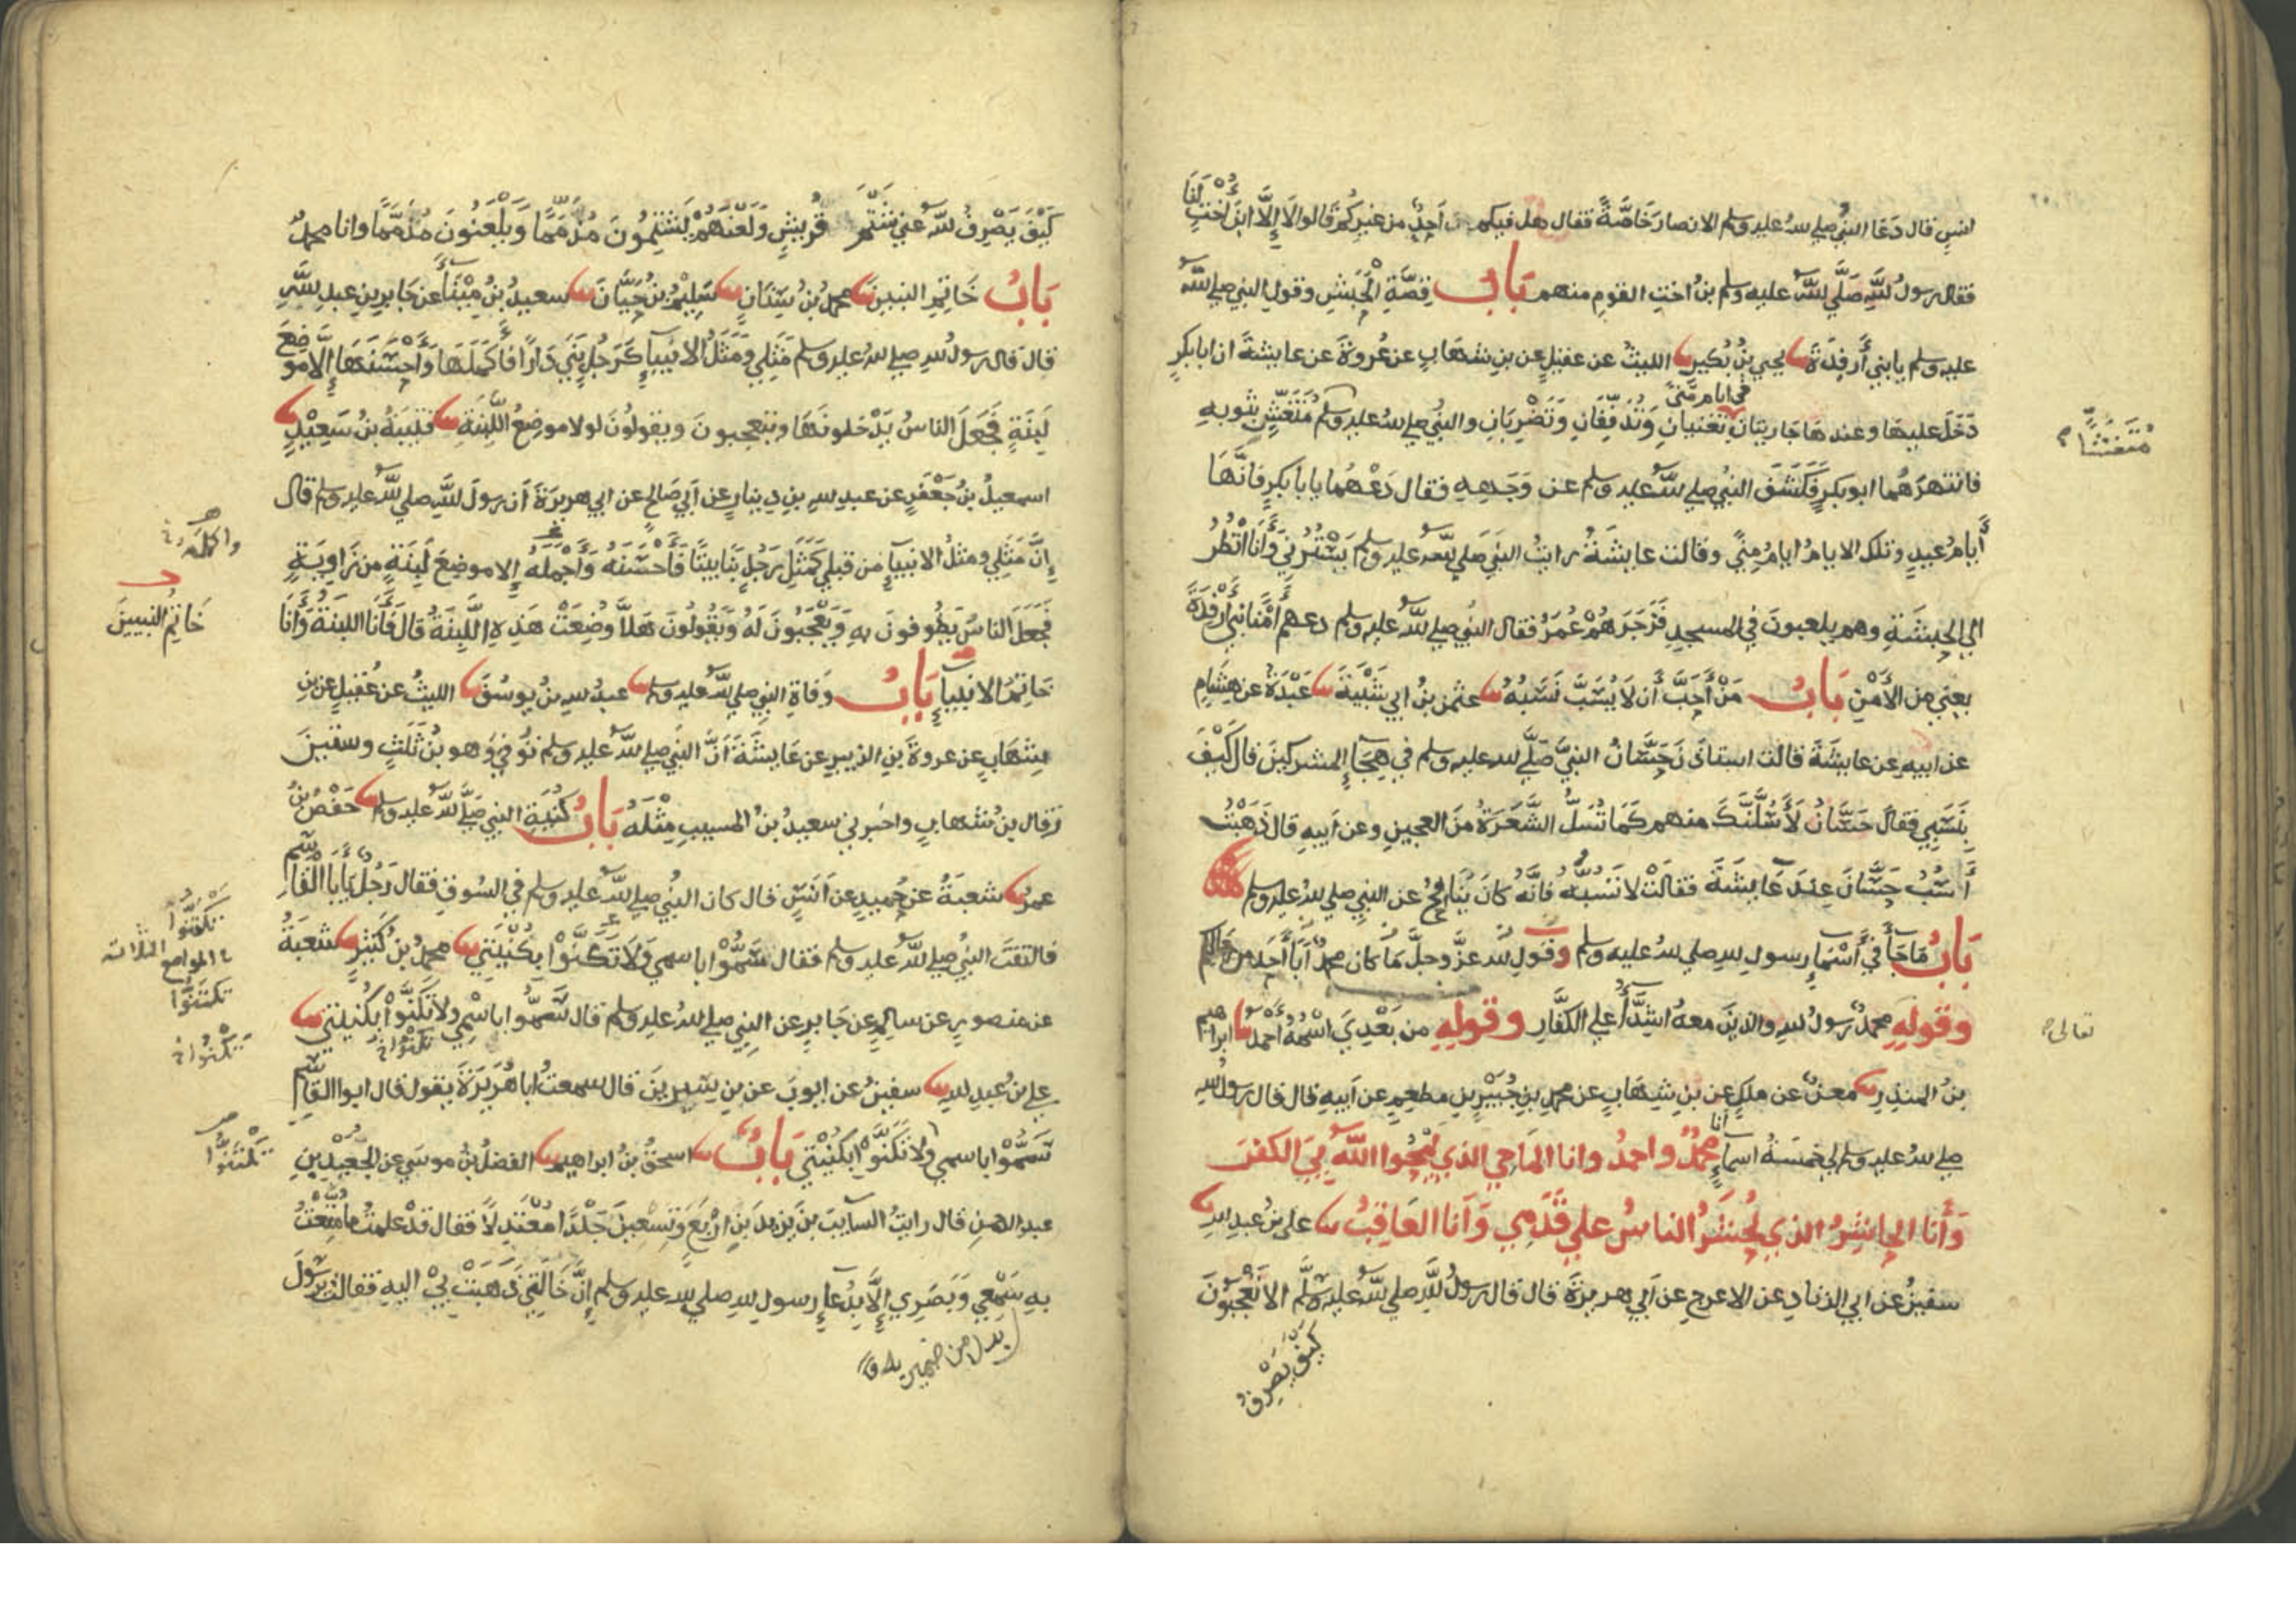 انس قال دَعَا النبيُّ صلي لله عليه وسلم الانصارَ خَاصَّةً فقال هل فيكم احدٌ من غيركم قالوا لا إلَّا ابنُ اختٍ لَنَا
فقال رسولُ للهِ صَلَّي لله عليه وسلم بنُ اختِ القومِ منهم بَابُ قِصَّةِ الحَبَشِ وقولِ النبي صلي لله
عليه وسلم يا بني أَرفِدَةَ يحيي بنُ بُكَيرٍ الليثُ عن عقيلٍ عن بن شهابٍ عن عُروةَ عن عايشةَ ان ابا بكرٍ
دَخَلَ عليها وعندها جاريتان في ايام مِنًي تغنيانِ وَتُدَفِّفَانِ وَتَضْرِبَانِ والنبيُّ صلي لله عليه وسلم مُتَغَشٍّ بثوبهِ
فانتهرَهُما ابو بكرٍ فَكَشَفَ النبيُّ صلي لله عليه وسلم عن وَجهِهِ فقال دَعْهُما يا با بكرٍ فانَّهَا
أيامُ عيدٍ وتلك الايامُ ايامُ مِنًي وقالت عايشةُ رايتُ النبيَ صلي لله عليه وسلم يَسْتُرُنِي وَأَنَا انْظُرُ
الي الحبشَةِ وهم يلعبونَ في المسجدِ فَزَجَرَهُمْ عُمَرُ فقال النبيُ صلي لله عليه وسلم دعهم أَمْنًا بني أَرْفِدَةَ
يعني مِنَ الأَمْنِ بَابُ مَنْ أَحَبَّ أَن لَا يُسَبَّ نَسَبُهُ عثمن بنُ ابي شَيْبَةَ عَبْدَةُ عن هِشَامٍ
عن ابيه عن عايشةَ قالت استاذنَ حَسَّانُ النبيَّ صَلَّي لله عليه وسلم في هِجَاءِ المشركينَ قال كَيْفَ
بِنَسَبِي فقالَ حَسَّانُ لَأَسُلَّنَّكَ منهم كَمَا تُسَلُّ الشَّعَرَةُ منَ العجينِ وعن أبيهِ قال ذَهَبْتُ
أَسُبُّ حَسَّانَ عِندَ عَايِشَةَ فقالتْ لا تَسُبُّهُ فانَّهُ كانَ يُنَافِحُ عن النبيِ صلي لله عليه وسلم
بَابُ مَا جَاءَ فِي أَسْمَاءِ رسولِ للهِ صلي لله عليه وسلم وقولِ لله عزَّ وجلَّ مَا كان محمدٌ أبَا أَحَدٍ من رجالكم
وقوله محمدٌ رسولُ للهِ والذينَ معهُ اشِدَّاءُ علي الكفَّارِ وقوله من بَعْدِيَ اسْمُهُ أحمدُ ابراهيم
بنُ المنذرِ معنٌ عن ملكٍ عن بن شِهَابٍ عن محمدِ بنِ جُبَيْرِ بن مطعمٍ عن أبيهِ قال قال رسولُ للهِ
صلي لله عليه وسلم لي خمسَةُ اسماءٍ انا محمدٌ واحمدُ وانا المَاحِي الذي يَمْحُوا اللهُ بِيَ الكفرَ
وَأَنا الحاشِرُ الذي يُحشَرُ الناسُ علي قَدَمِي وَأنا العَاقِبُ علي بنُ عبدِ للهِ
سفينُ عن ابي الزنادِ عن الاعرجِ عن أبي هريرَةَ قال قال رسولُ للهِ صلي لله عليه وسلَّم الا تعجبونَ
كَيْفَ يَصْرِفُ
مُتَغَشِّيًا
تعالي
كَيْفَ يَصْرِفُ لله عني شَتْمَ قُرَيشٍ وَلَعْنَهُمْ يَشْتِمُونَ مُذَمَّمًا وَيَلْعَنُونَ مُذَمَّمًا وانا محمدٌ
بَابُ خَاتِمِ النبيين محمدُ بنُ سِنَانٍ سَلِيمُ بنُ حَيَّانَ سعيدُ بنُ مِيْنَاءَ عن جَابِرِ بنِ عبدِ للهِ
قالَ قال رسولُ للهِ صلي لله عليه وسلم مَثَلِي وَمَثَلُ الانبياءِ كَرَجُلٍ بَنَي دَارًا فَأَكمَلَهَا وَأَحْسَنَهَا إلَّا مَوضِعَ
لَبِنَةٍ فَجَعَلَ الناسُ يَدْخلونَهَا ويتعجبونَ ويقولونَ لولا موضِعُ اللَّبِنَةِ قتيبَةُ بنُ سَعِيْدٍ
اسمعيلُ بنُ جَعْفَرٍ عن عبدِ للهِ بنِ دِينارٍ عن أَبي صَالحٍ عن ابي هريرَةَ أن رسولَ للهِ صلي لله عليه وسلم قال
إنَّ مَثَلِي ومثلُ الانبياءِ من قبلي كَمَثَلِ رَجُلٍ بَنَا بيتًا فَأَحْسَنَهُ وَأَجْمَلَهُ إلا موضِعَ لَبِنَةٍ من زَاوِيَةٍ
فَجَعَلَ الناسُ يَطُوفونَ بهِ وَيَعْجَبُونَ لَهُ وَيَقُولُونَ هَلاَّ وُضِعَتْ هَذِهِ اللَّبِنَةُ قالَ فَأَنَا اللبنَةُ وَأَنَا
خَاتِمُ الانبياءِ بَابُ وَفَاةِ النبيِ صلي لله عليه وسلم عبدُ للهِ بنُ يوسُفَ الليثُ عن عُقيلٍ عن بنِ
شِهَابٍ عن عروةَ بنِ الزبيرِ عن عَايشَةَ أنَّ النبيَ صلي لله عليه وسلم تُوُفِّيَ وَهو بنُ ثَلثٍ وستينَ
وَقال بن شهابٍ واخبرني سعيدُ بنُ المسيبِ مِثْلَهُ بَابُ كُنْيَةِ النبيِ صَلَّي لله عليه وسلم حَفْصُ بنُ
عمرَ شعبَةُ عن حُميدٍ عن أنَسٍ قال كان النبيُ صلي لله عليه وسلم في السُوقِ فقال رَجُلٌ يَا أبَا القَاسِم
فالتفتَ النبيُ صلي لله عليه وسلم فقال سَمُّوا باسمي وَلَا تَكَنَّوْا بِكُنْيَتِي محمدُ بنُ كَثيرٍ شعبَةُ
عن منصورٍ عن سالمٍ عن جَابرٍ عن النبيِ صلي لله عليه وسلم قال سَمُّوا باسْمِي ولا تَكَنَّوْا بكُنْيَتِي
علي بنُ عبدِ للهِ سفينُ عن ايوبَ عن بنِ سِيرِينَ قال سمعتُ ابا هُرَيْرَةَ يقول قال ابوا القَاسِم
سَمُّوا باسمي وَلَا تَكَنَّوْا بكُنْيَتِي بَابُ اسحقُ بنُ ابراهيم الفضلُ بنُ موسَي عن الجُعَيْدِ بنِ
عبد الرحمنِ قال رايتُ السايبَ بنَ يزيدَ بنَ اربَعٍ وَتِسْعِينَ جَلْدًا مُعْتَدِلًا فقال قدْ علمتُ ما مُتِّعْتُ
بهِ سَمْعِي وَبَصَرِي إلَّا بِدُعَاءِ رسولِ للهِ صلي لله عليه وسلم إنَّ خَالَتِي ذَهَبَتْ بِيْ اليهِ فقالت يرسُولَ
بدل من ضمير به
واكمله
خَاتِمُ النبيينَ
تَكْتَنُوا
المواضع الثلاثة
تكتنوا
تَكْتَنُوا